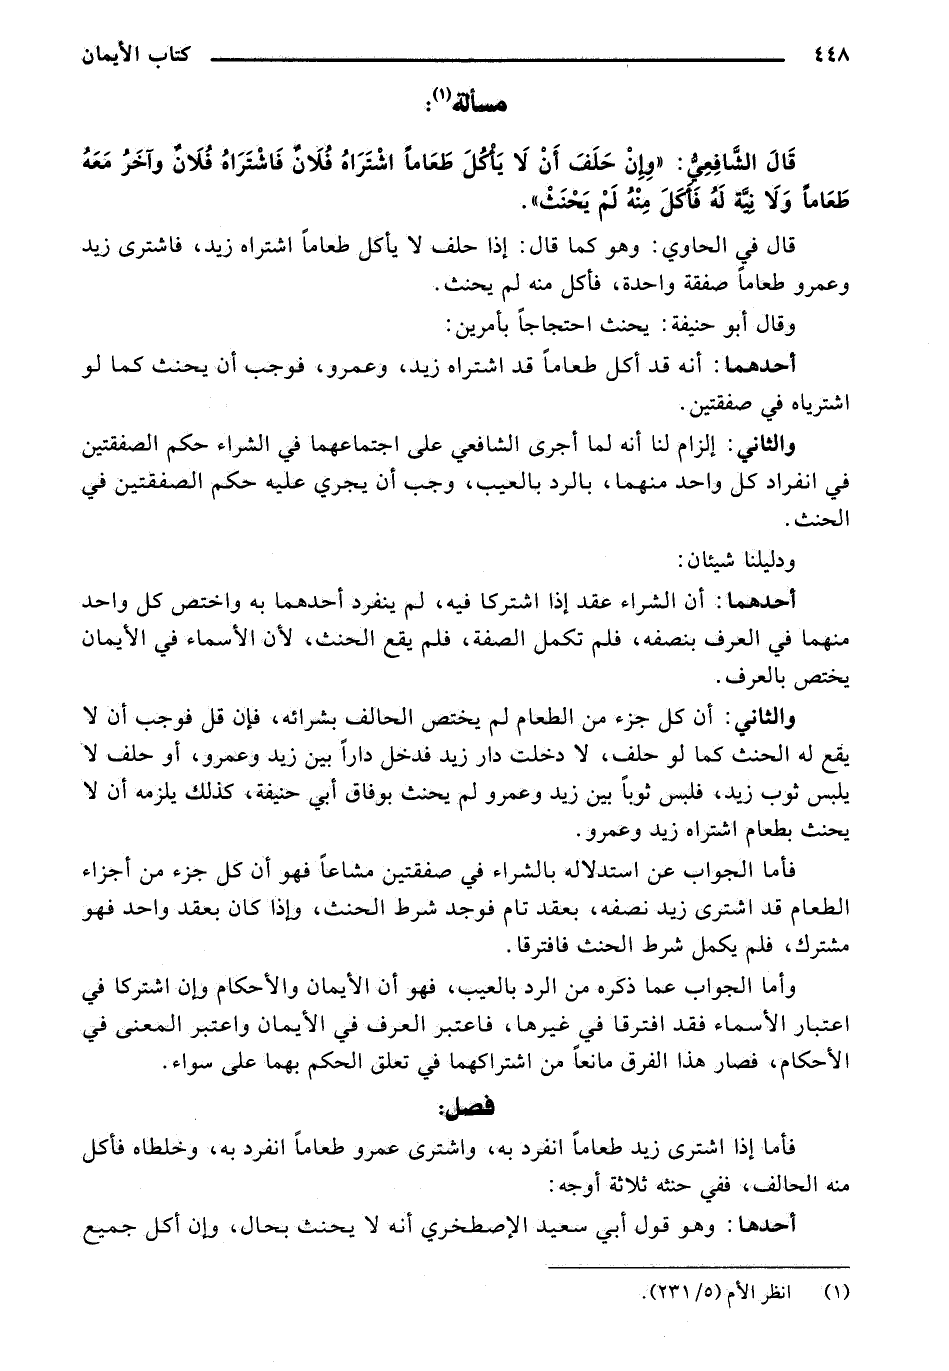 ٤٤٨ كتاب الأيمان
مسألة(١):
قَالَ الشَّافِعِيُّ: «وِإِنْ حَلَفَ أَنْ لَا يَأْكُلَ طَعَاماً اشْتَرَاهُ فُلَانٌ فَاشْتَرَاهُ فُلَانٌ وآخَرُ مَعَهُ
طَعَاماً وَلَا نِيَّة لَهُ فَأَكَلَ مِنْهُ لَمْ يَحْنَثْ».
قال في الحاوي: وهو كما قال: إذا حلف لا يأكل طعاماً اشتراه زيد، فاشترى زيد
وعمرو طعاماً صفقة واحدة، فأكل منه لم يحنث.
وقال أبو حنيفة: يحنث احتجاجاً بأمرين:
أحدهما: أنه قد أكل طعاماً قد اشتراه زيد، وعمرو، فوجب أن يحنث كما لو
اشترياه في صفقتين.
والثاني: إلزام لنا أنه لما أجرى الشافعي على اجتماعهما في الشراء حكم الصفقتين
في انفراد كل واحد منهما، بالرد بالعيب، وجب أن يجري عليه حكم الصفقتين في
الحنث.
ودليلنا شيئان:
أحدهما: أن الشراء عقد إذا اشتركا فيه، لم ينفرد أحدهما به واختص كل واحد
منهما في العرف بنصفه، فلم تكمل الصفة، فلم يقع الحنث، لأن الأسماء في الأيمان
يختص بالعرف.
والثاني: أن كل جزء من الطعام لم يختص الحالف بشرائه، فإن قل فوجب أن لا
يقع له الحنث كما لو حلف، لا دخلت دار زيد فدخل داراً بين زيد وعمرو، أو حلف لا
يلبس ثوب زيد، فلبس ثوباً بين زيد وعمرو لم يحنث بوفاق أبي حنيفة، كذلك يلزمه أن لا
يحنث بطعام اشتراه زيد وعمرو.
فأما الجواب عن استدلاله بالشراء في صفقتين مشاعاً فهو أن كل جزء من أجزاء
الطعام قد اشترى زيد نصفه، بعقد تام فوجد شرط الحنث، وإذا كان بعقد واحد فهو
مشترك، فلم يكمل شرط الحنث فافترقا.
وأما الجواب عما ذكره من الرد بالعيب، فهو أن الأيمان والأحكام وإن اشتركا في
اعتبار الأسماء فقد افترقا في غيرها، فاعتبر العرف في الأيمان واعتبر المعنى في
الأحكام، فصار هذا الفرق مانعاً من اشتراكهما في تعلق الحكم بهما على سواء.
فصل:
فأما إذا اشترى زيد طعاماً انفرد به، واشترى عمرو طعاماً انفرد به، وخلطاه فأكل
منه الحالف، ففي حنثه ثلاثة أوجه:
أحدها: وهو قول أبي سعيد الإصطخري أنه لا يحنث بحال، وإن أكل جميع
(١) انظر الأم (٥/ ٢٣١).